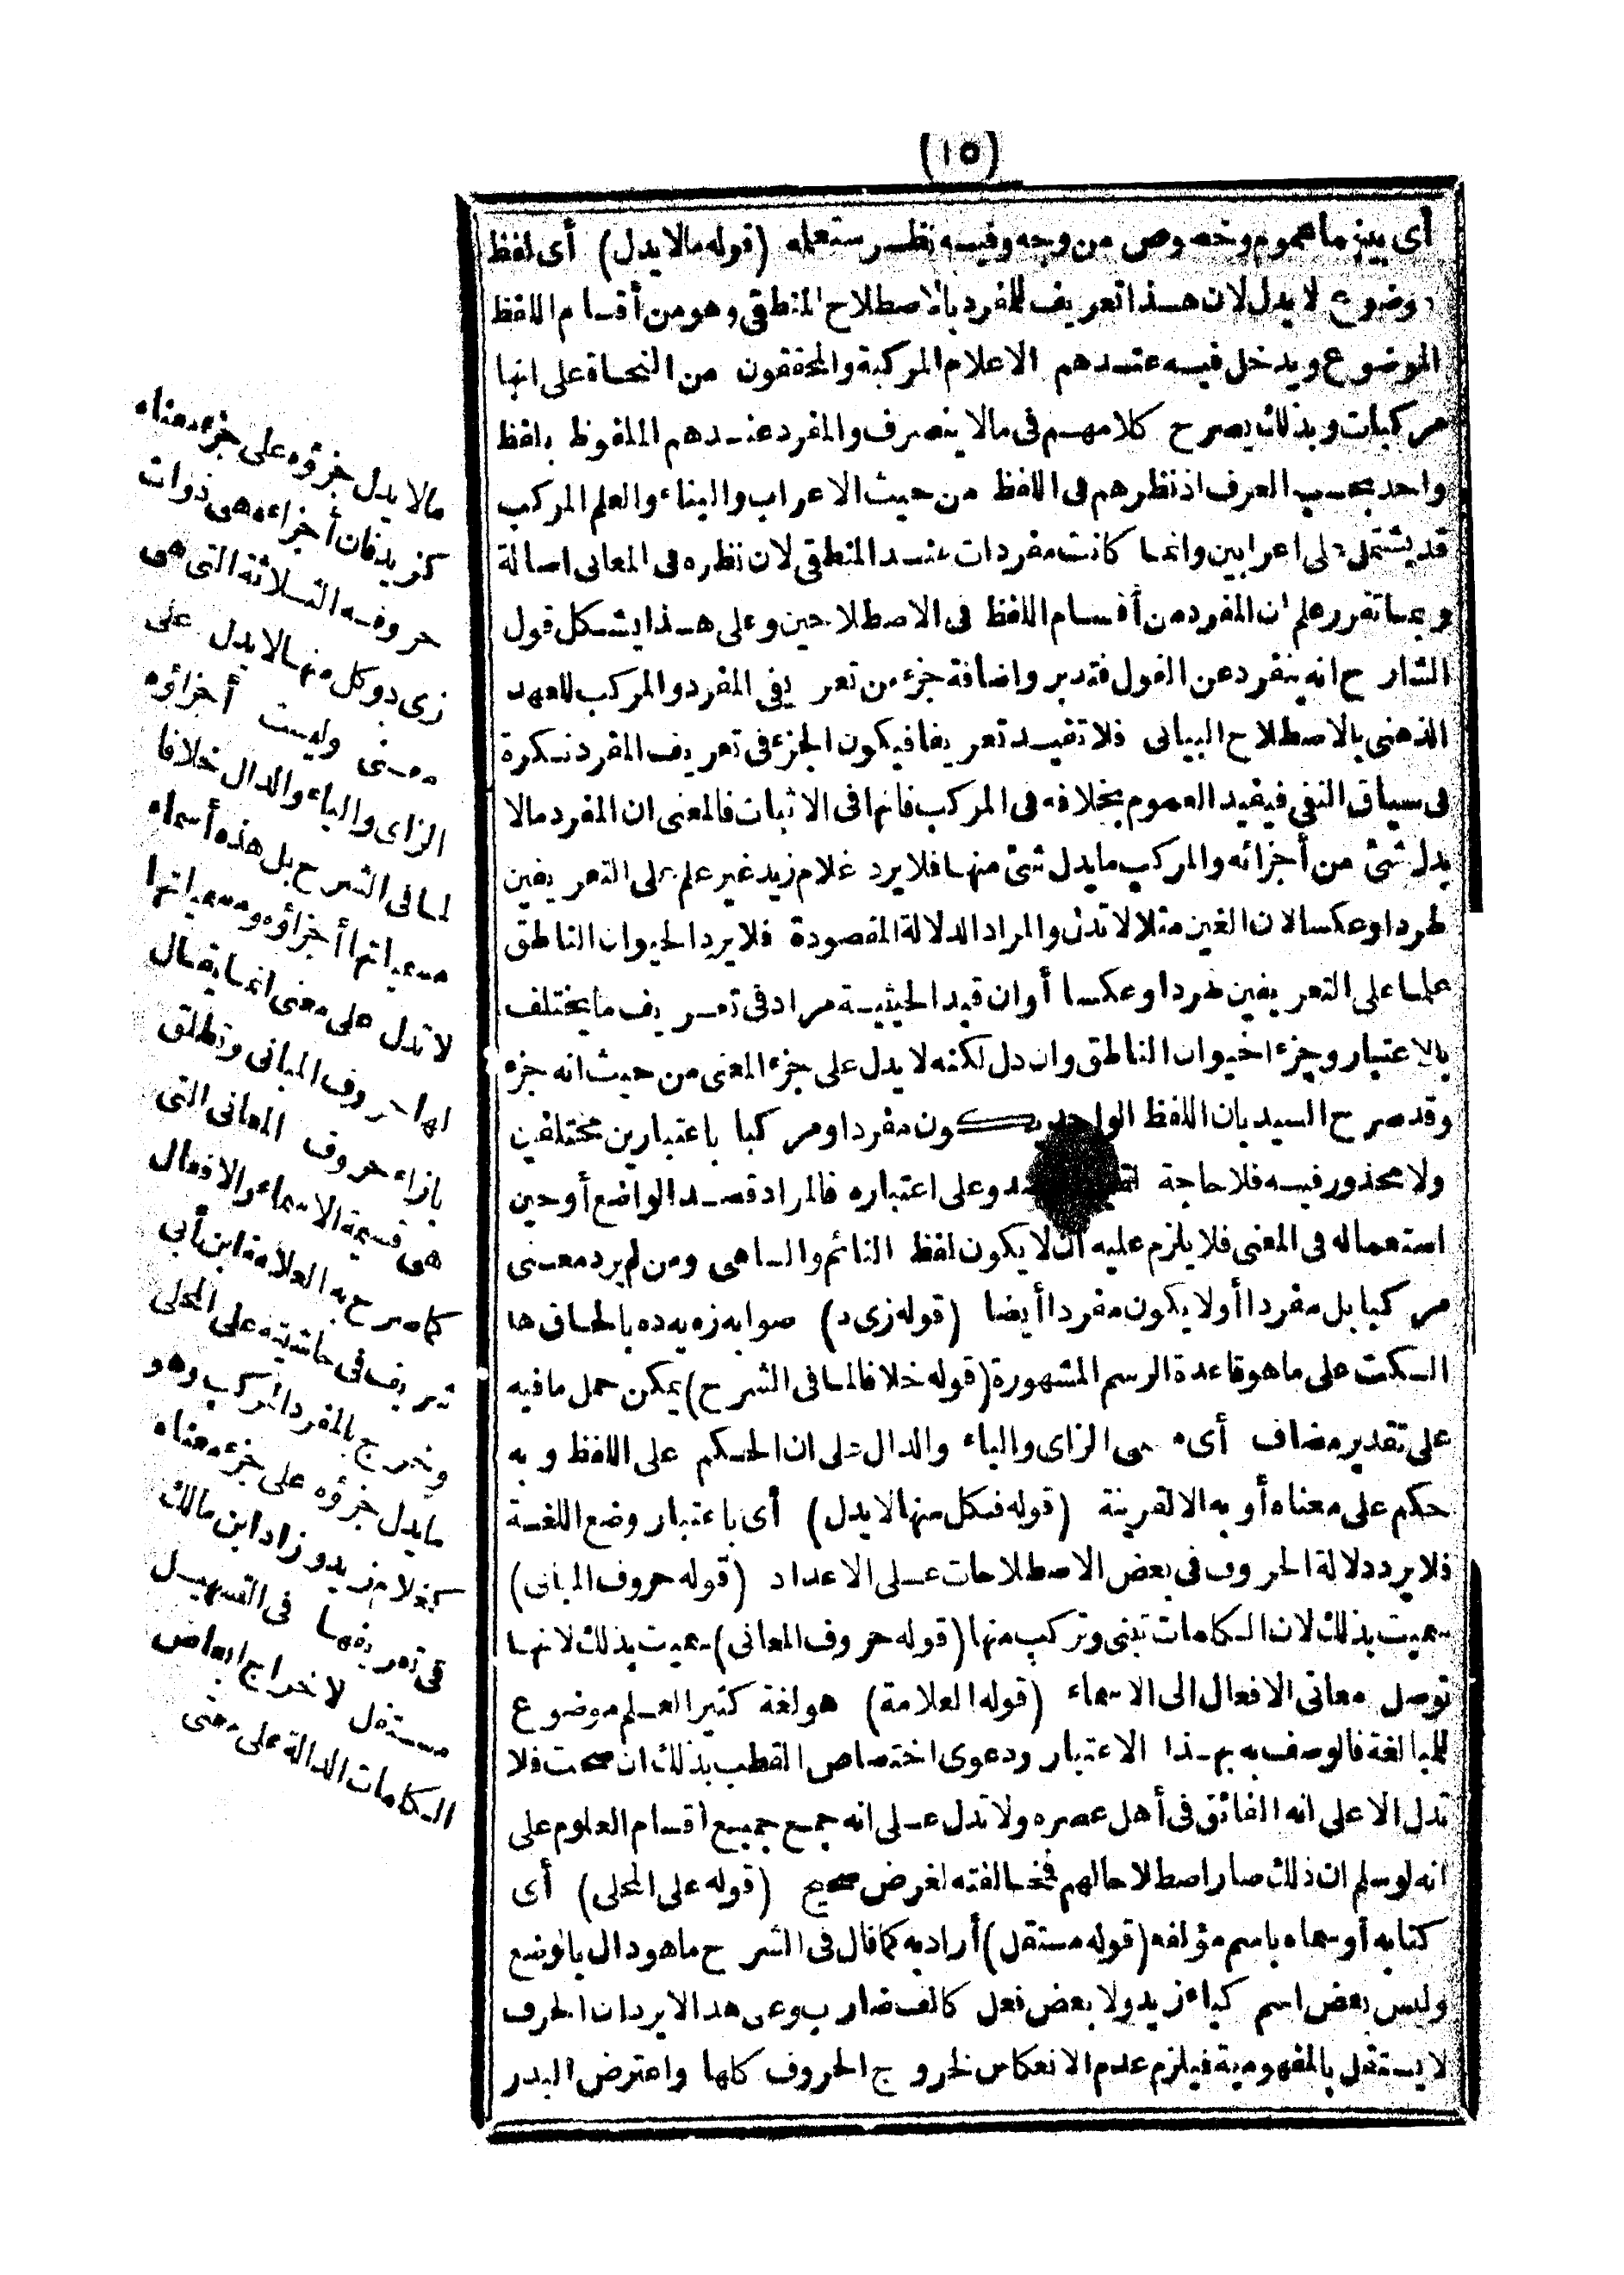 (١٥)
أى بينهما عموم وخصوص من وجه وفيه نظر ستعلمه (قوله مالا يدل) أى لفظ
موضوع لا يدل لان هذا تعريف للمفرد بالاصطلاح المنطقى وهو من أقسام اللفظ
الموضوع ويدخل فيه عندهم الاعلام المركبة والمحققون من النحاة على انها
مركبات وبذلك يصرح كلامهم فى مالا ينصرف والمفرد عندهم الملفوظ بلفظ
واحد بحسب العرف اذ نظرهم فى اللفظ من حيث الاعراب والبناء والعلم المركب
قد يشتمل على اعرابين وانما كانت مفردات عند المنطقى لان نظره فى المعانى اصالة
وبما تقرر علم ان المفرد من أقسام اللفظ فى الاصطلاحين وعلى هذا يشكل قول
الشارح انه ينفرد عن القول فتدبر واضافة جزء من تعريفى المفرد والمركب للعهد
الذهنى بالاصطلاح البيانى فلا تفيد تعريفا فيكون الجزء فى تعريف المفرد نكرة
فى سياق النفى فيفيد العموم بخلافه فى المركب فانها فى الاثبات فالمعنى ان المفرد مالا
يدل شئ من أجزائه والمركب ما يدل شئ منها فلا يرد غلام زيد غير علم على التعريفين
طردا وعكسا لان الغين مثلا لا تدل والمراد الدلالة المقصودة فلا يرد الحيوان الناطق
علما على التعريفين طردا وعكسا أو ان قيد الحيثية مراد فى تعريف ما يختلف
بالاعتبار وجزء الحيوان الناطق وان دل لكنه لا يدل على جزء المعنى من حيث انه جزء
وقد صرح السيد بان اللفظ الواحد يكون مفردا ومركبا باعتبارين مختلفين
ولا محذور فيه فلا حاجة وعلى اعتباره فالمراد قصد الواضع أو حين
استعماله فى المعنى فلا يلزم عليه ان لا يكون لفظ النائم والساهى ومن لم يرد معنى
مركبا بل مفردا أو لا يكون مفردا أيضا (قوله زى د) صوابه زه يه ده بالحاق ها
السكت على ما هو قاعدة الرسم المشهورة (قوله خلافا لما فى الشرح) يمكن حمل ما فيه
على تقدير مضاف أى مسمى الزاى والياء والدال على ان الحكم على اللفظ وبه
حكم على معناه أو به الا لقرينة (قوله فكل منها لا يدل) أى باعتبار وضع اللغة
فلا يرد دلالة الحروف فى بعض الاصطلاحات على الاعداد (قوله حروف المبانى)
سميت بذلك لان الكلمات تبنى وتركب منها (قوله حروف المعانى) سميت بذلك لانها
توصل معانى الافعال الى الاسماء (قوله العلامة) هو لغة كثير العلم موضوع
للمبالغة فالوصف به بهذا الاعتبار ودعوى اختصاص القطب بذلك ان صحت فلا
تدل الا على انه الفائق فى أهل عصره ولا تدل على انه جمع جميع اقسام العلوم على
انه لو سلم ان ذلك صار اصطلاحا لهم فمخالفته لغرض صحيح (قوله على المحلى) أى
كتابه أو سماه باسم مؤلفه (قوله مستقل) أراد به كما قال فى الشرح ما هو دال بالوضع
وليس بعض اسم كياء زيد ولا بعض فعل كالف ضارب وعلى هذا لا يرد ان الحرف
لا يستقل بالمفهومية فيلزم عدم الانعكاس لخروج الحروف كلها واعترض البدر
مالا يدل جزؤه على جزء معناه
كزيد فان أجزاءه هى ذوات
حروفه الثلاثة التى هى
زى د وكل منها لا يدل على
معنى وليست أجزاؤه
الزاى والياء والدال خلافا
لما فى الشرح بل هذه أسماء
مسمياتها أجزاؤه ومسمياتها
لا تدل على معنى انما يقال
لها حروف المبانى وتطلق
بازاء حروف المعانى التى
هى قسيمة الاسماء والافعال
كما صرح به العلامة ابن أبى
شريف فى حاشيته على المحلى
وخرج بالمفرد المركب وهو
ما يدل جزؤه على جزء معناه
كغلام زيد وزاد ابن مالك
فى تعريفها فى التسهيل
مستقل لاخراج ابعاض
الكلمات الدالة على معنى